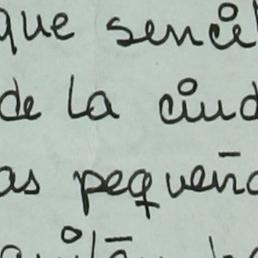 que senci
de la ciud
as pequeña